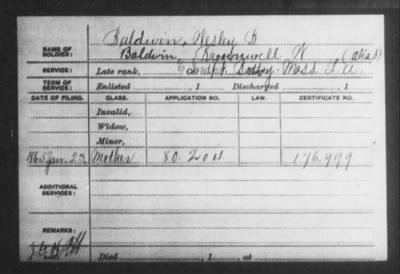 NAME OF SOLDIER: Baldwin, Wesley B
Baldwin, W (alias)
SERVICE: Late rank, Mass
TERM OF SERVICE: Enlisted , 1 Discharged , 1
DATE OF FILING. CLASS. APPLICATION NO. LAW. CERTIFICATE NO.
Invalid,
Widow,
Minor,
1865 Jan. Mother 80.204 176.999
ADDITIONAL SERVICES:
REMARKS:
Died , 1 , at